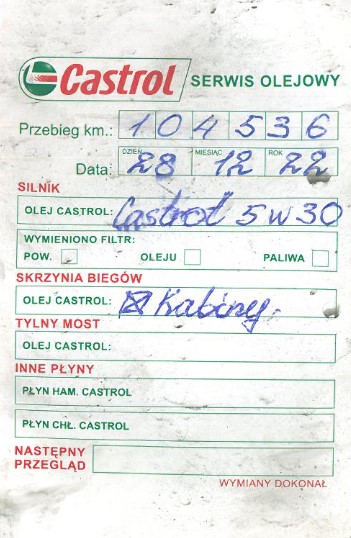 Castrol SERWIS OLEJOWY
Przebieg km.: 104536
DZIEŃ MIESIĄC ROK
Data: 28 12 22
SILNIK
OLEJ CASTROL: Castrol 5w30
WYMIENIONO FILTR:
POW. OLEJU PALIWA
SKRZYNIA BIEGÓW
OLEJ CASTROL: ☒ Kabiny.
TYLNY MOST
OLEJ CASTROL:
INNE PŁYNY
PŁYN HAM. CASTROL
PŁYN CHŁ. CASTROL
NASTĘPNY
PRZEGLĄD
WYMIANY DOKONAŁ